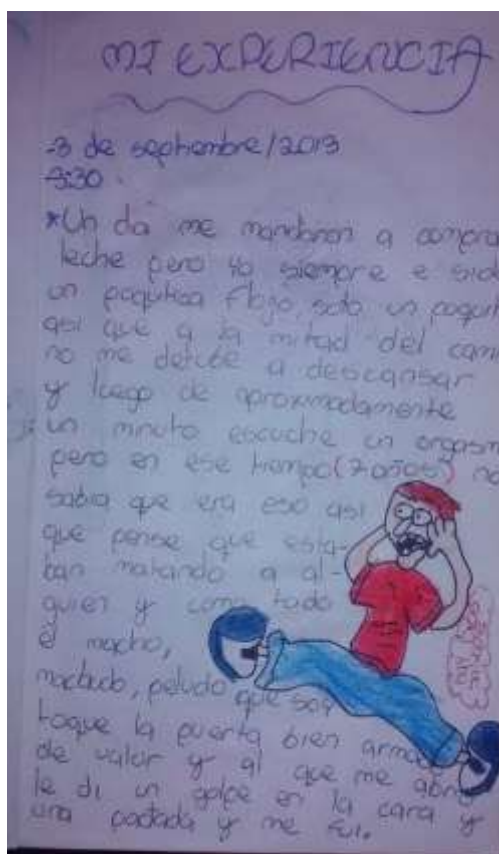 MI EXPERIENCIA
-3 de septiembre/2013
-3:30
*Un da me mandaron a compra
leche pero yo siempre e sido
un poquitoa flojo, solo un poquit
asi que a la mitad del cami
no me detube a descansar
y luego de aproximadamente
un minuto escuche un orgasm
pero en ese tiempo (7 años) no
sabia que era eso asi
que pense que esta-
ban matando a al-
guien y como todo
el macho,
machudo, peludo que soy
toque la puerta bien arma
de valor y al que me abri
le di un golpe en la cara y
una patada y me fui.